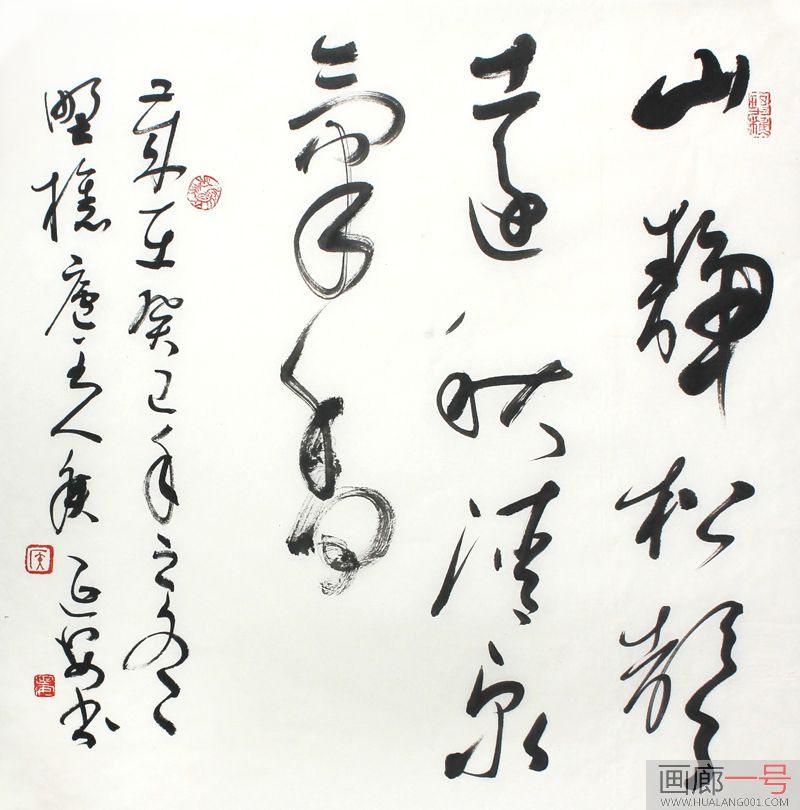 山静松韵
远秋清泉
气香
岁在癸巳年之冬
野樵庐主人侯延安书
画廊一号
WWW.HUALANG001.COM